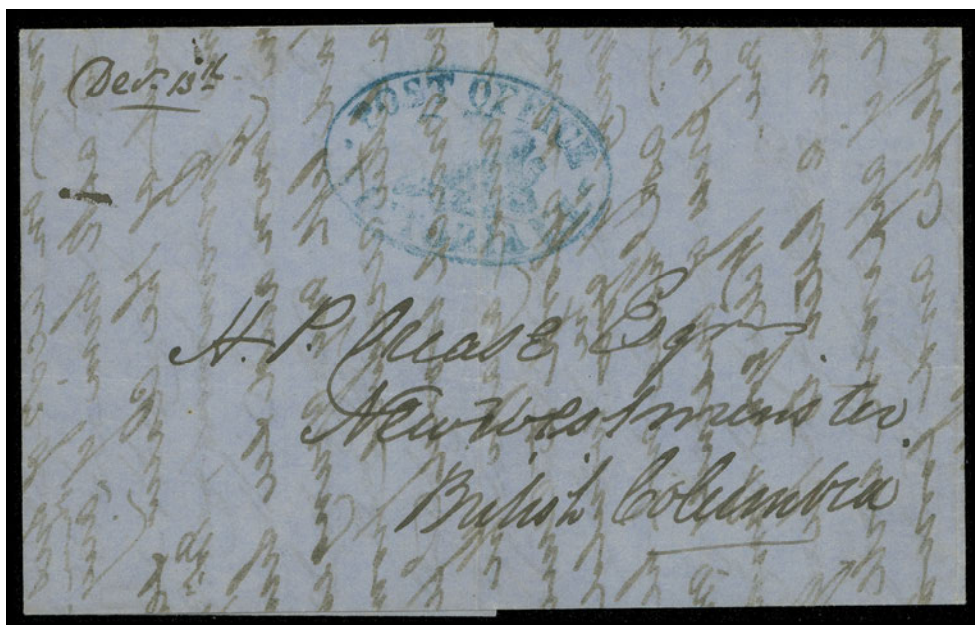 Dec. 13th
POST OFFICE
VICTORIA
H. P. Crease Esqre
New Westminster
British Columbia